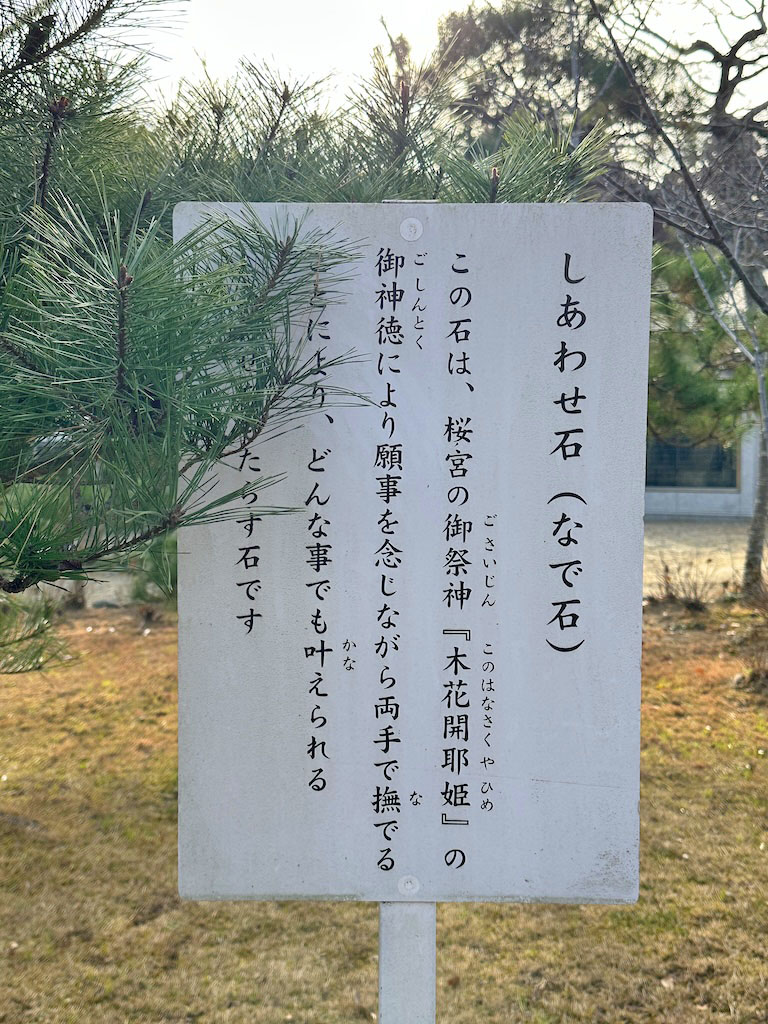 しあわせ石（なで石）
ごさいじん このはなさくやひめ
この石は、桜宮の御祭神『木花開耶姫』の
ごしんとく な
御神徳により願事を念じながら両手で撫でる
かな
により、どんな事でも叶えられる
せ たらす石です